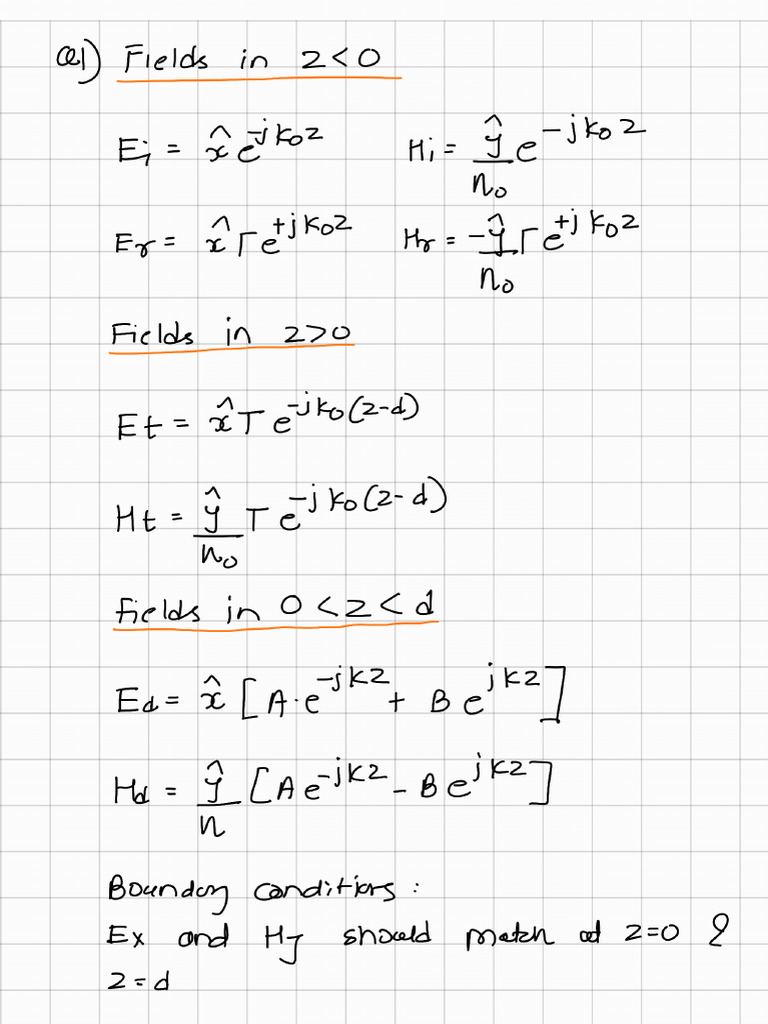 Q1) Fields in z<0
Ei = x̂ e^-jk0z   Hi = ŷ/n0 e^-jk0z
Er = x̂ Γe^+jk0z   Hr = -ŷ/n0 Γe^+jk0z
Fields in z>0
Et = x̂ T e^-jk0(z-d)
Ht = ŷ/n0 T e^-jk0(z-d)
Fields in 0<z<d
Ed = x̂ [A·e^-jkz + B e^jkz]
Hd = ŷ/n [Ae^-jkz - Be^jkz]
Boundary conditions :
Ex and Hy should match at z=0 &
z=d